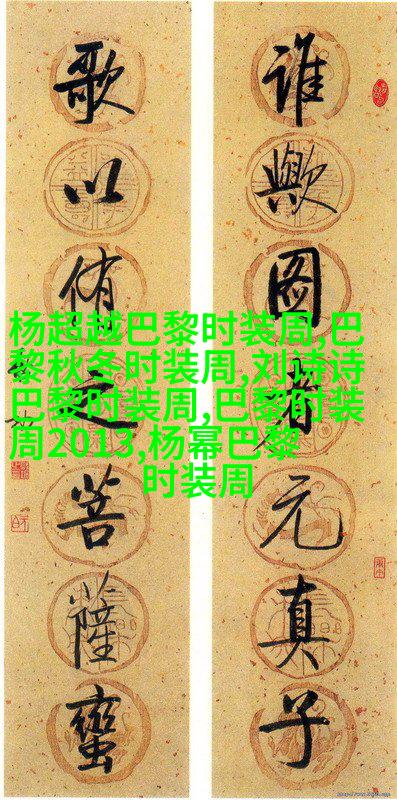 谁歟图者元真子
歌以侑之菩薩蠻
杨超越巴黎时装周,巴
黎秋冬时装周,刘诗诗
巴黎时装周,巴黎时装
周2013,杨幂巴黎
时装周